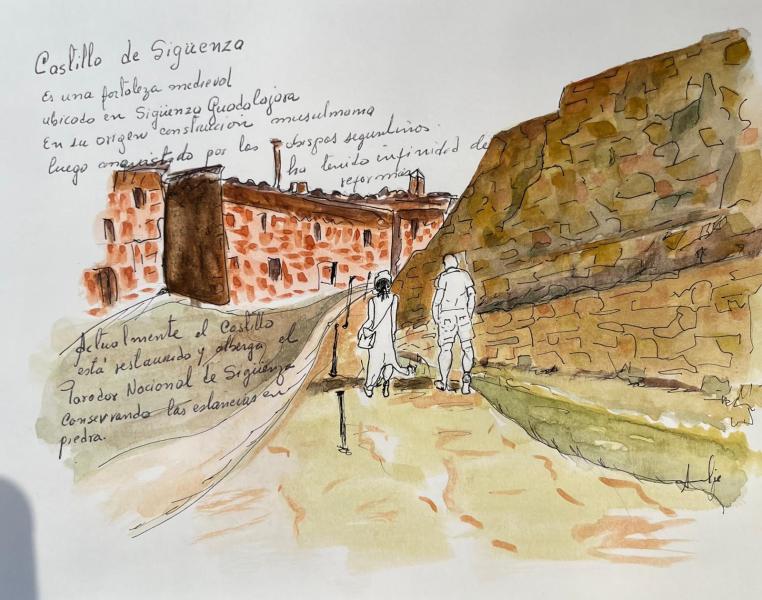 Castillo de Sigüenza
Es una fortaleza medieval
ubicado en Sigüenza Guadalajara
En su origen construcción musulmana
luego conquistado por los obispos seguntinos.
ha tenido infinidad de
reformas
Actualmente el Castillo
está restaurado y alberga el
Parador Nacional de Sigüenza
conservando las estancias en
piedra.